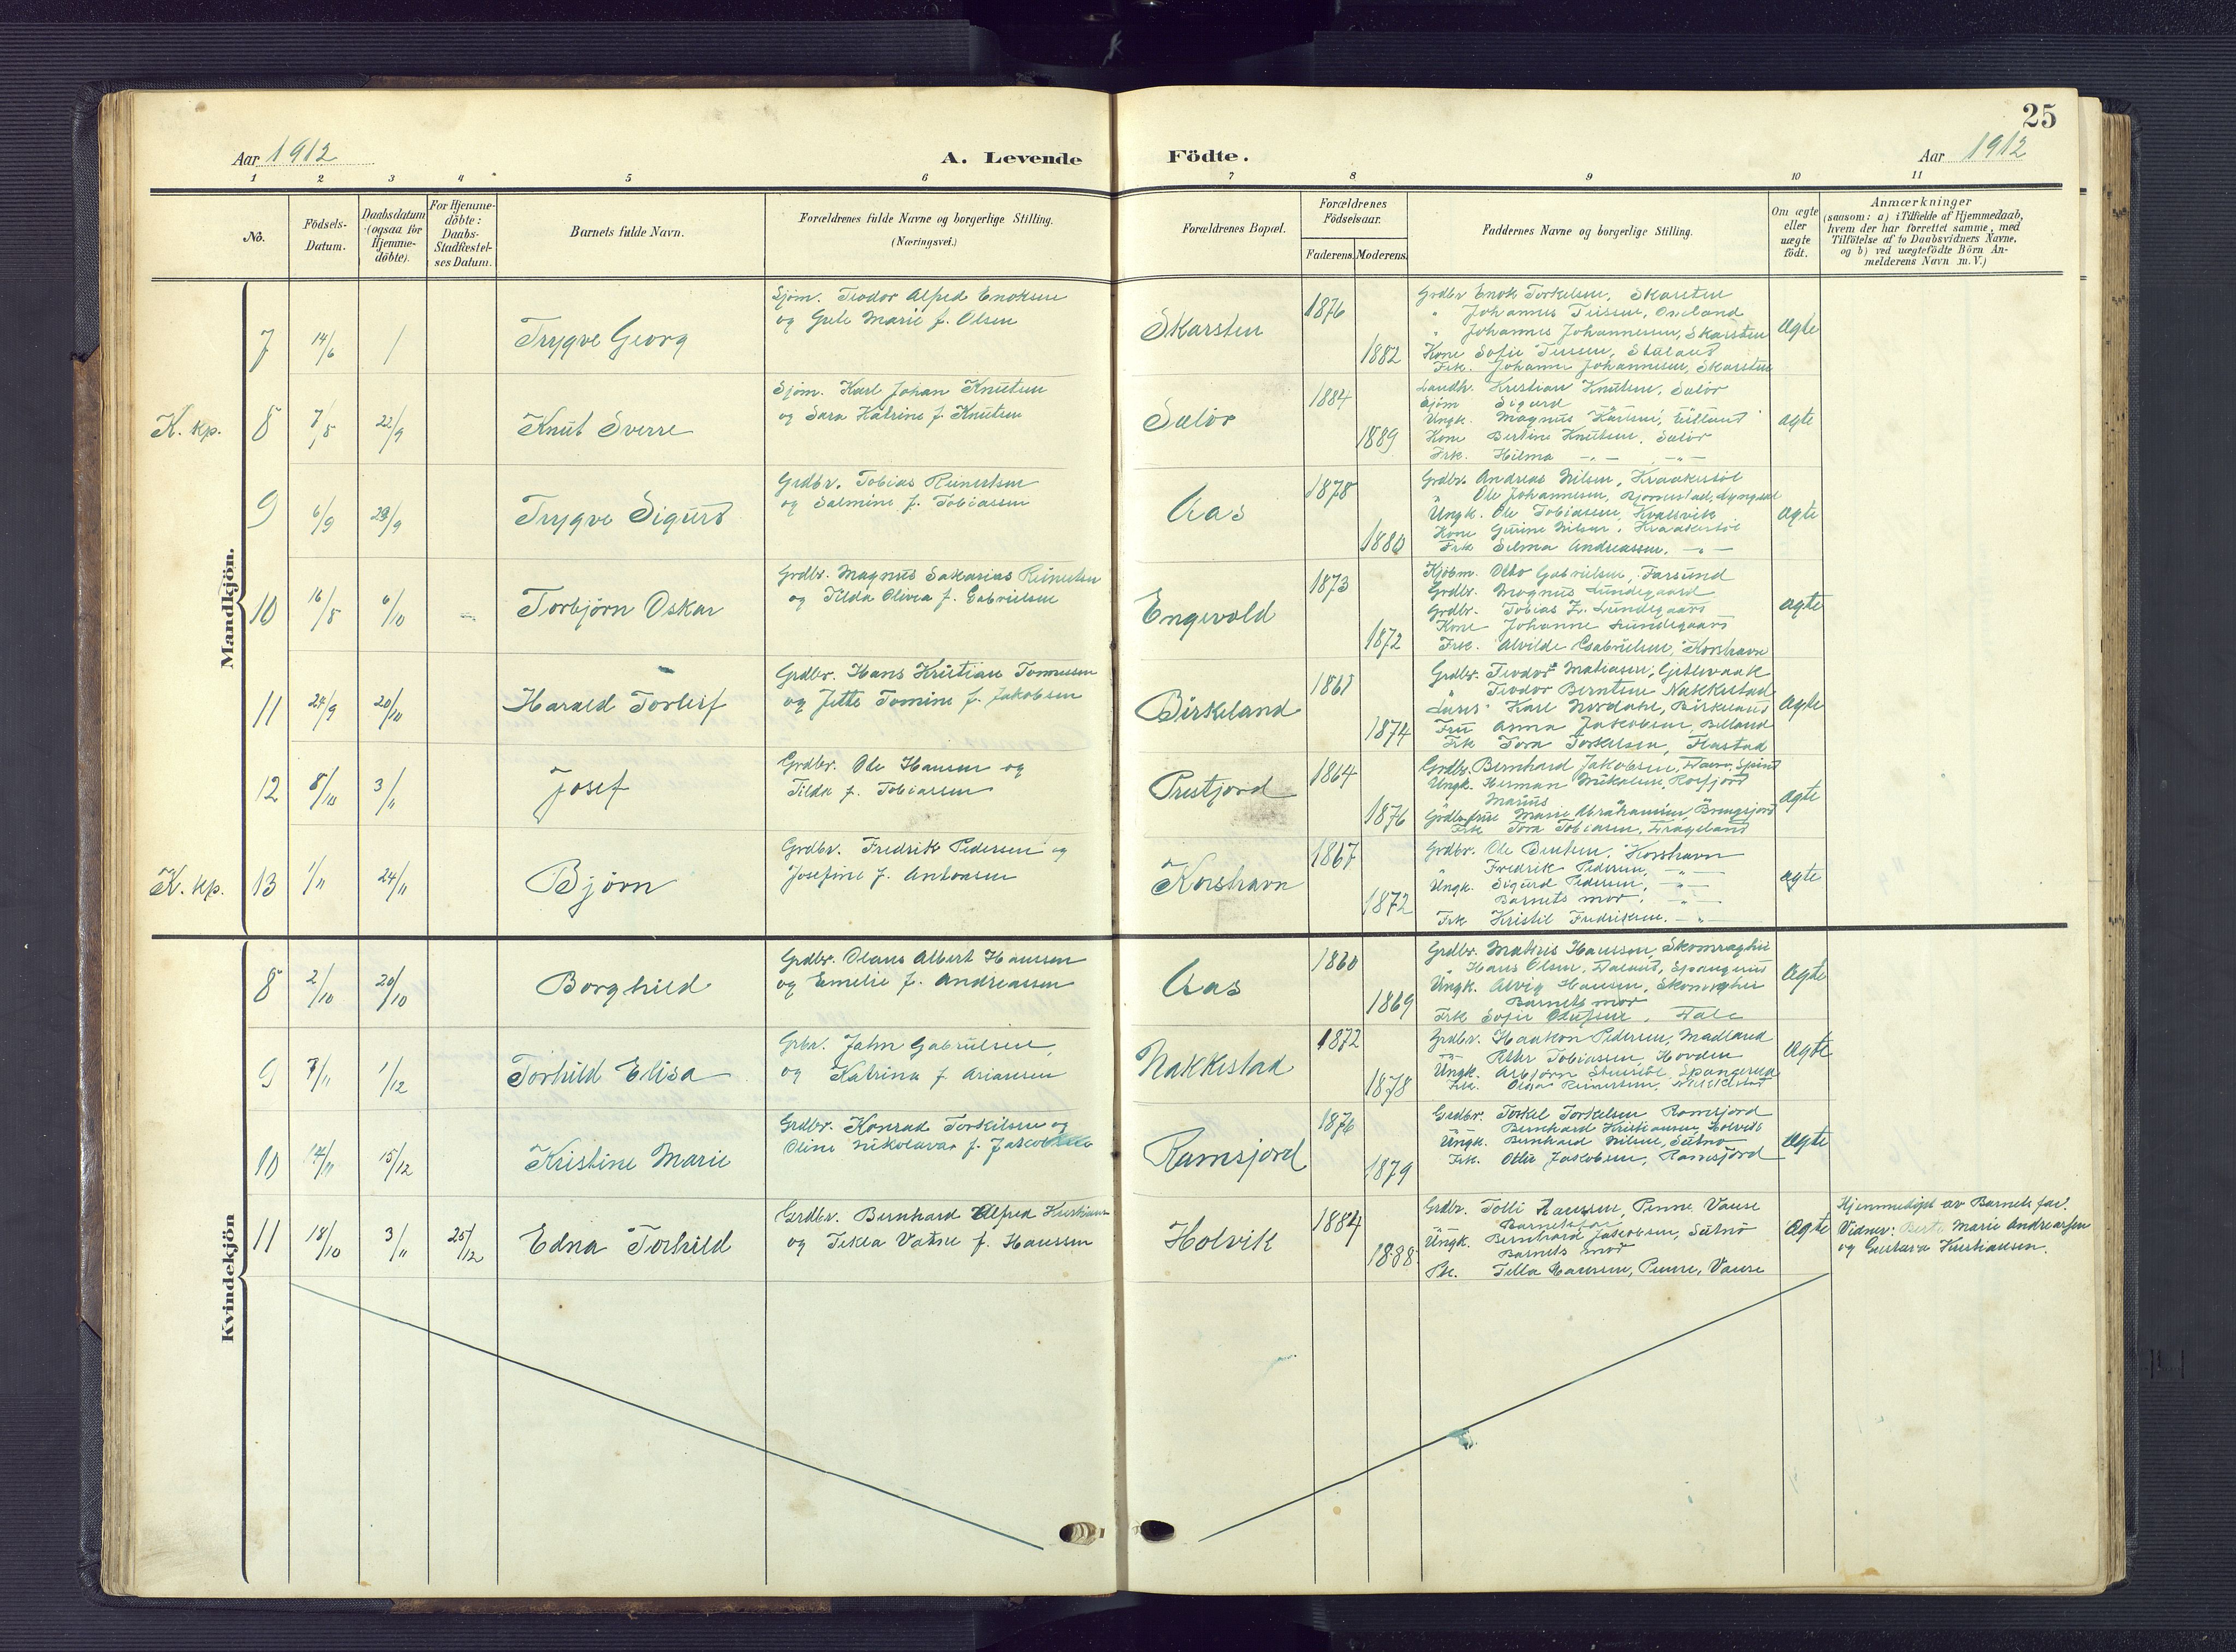 25
Aar 1912
A. Levende
Födte.
Aar 1912
1 2 3 4 5 6 7 8 9 10 11
No.
Födsels-Datum.
Daabsdatum (ogsaa for Hjemme-döbte).
For Hjemme-döbte: Daabs-Stadfæstel-ses Datum.
Barnets fulde Navn.
Forældrenes fulde Navne og borgerlige Stilling.
(Næringsvei.)
Forældrenes Bopæl.
Forældrenes Födselsaar.
Faderens. Moderens.
Faddernes Navne og borgerlige Stilling.
Om ægte eller uægte födt.
Anmærkninger
(saasom: a) i Tilfælde af Hjemmedaab,
hvem der har forrettet samme, med
Tilföielse af to Daabsvidners Navne,
og b) ved uægtefödte Börn An-
melderens Navn m. V.)
Mandkjön.
7 14/6 / Trygve Georg
Sjøm. Teodor Alfred Enoksen
og Grete Marie f. Olsen
Skarsten 1876 1882
Grdbr Enok Torkelsen, Skarsten
" Johannes Johannessen, Skarsten
Kone Sofie
Frk. Johanne Johannesen, Skarsten
ægte
K. kp. 8 7/8 22/9 Knut Sverre
Sjøm. Karl Johan Knutsen
og Sara Katrine f. Knutsen
Salör 1884 1889
Kristian Knutsen, Salör
Sjøm Sigurd
Ungk. Magnus Karlsen,
Kone Bertine Knutsen, Salör
Frk. Hilma — " — — " —
ægte
9 6/9 29/9 Trygve Sigurd
Grdbr. Tobias Reinertsen
og Salmine f. Tobiassen
Aas 1878 1880
Grdbr. Andreas Nilsen, Kraakersöl
" Ole Johannesen, Bjornestad, Lyngdal
Ungk. Ole Tobiassen, Kvalsvik
Kone Gurine Nilsen, Kraakersöl
Frk Selma Andreassen. — " —
ægte
10 16/8 6/10 Torbjörn Oskar
Grdbr. Magnus Sakarias Reinertsen
og Tilda Olivia f. Gabrielsen
Engevold 1873 1872
Kjöbm. Otto Gabrielsen, Farsund
Grdbr. Magnus Lundegaard
Grdbr. Tobias Z. Lundegaard
Kone Johanne Lundegaard
Frk. Alvilde Gabrielsen, Korshavn
ægte
11 24/9 20/10 Harald Torleif
Grdbr. Hans Kristian Tomessen
og Jette Tomine f. Jakobsen
Birkeland 1861 1874
Grdbr. Teodor Matiasen, Gjetlevaak
" Teodor Berntsen Nakkestad
Karl Nordahl, Birkeland
Fru Anna Jakobsen, Belland
Frk Tora Torkelsen, Flastad
ægte
12 8/10 3/11 Josef
Grdbr. Ole Hansen og
Tilda f. Tobiassen
Prestjord 1864 1876
Grdbr. Bernhard Jakobsen, Spind
Ungk. Herman Mikalsen, Rosfjord
" Marius
Marie Abrahamsen,
Frk Tora Tobiasen, Drageland
ægte
K. kp. 13 1/11 24/11 Björn
Grdbr. Fredrik Pedersen og
Josefine f. Antonsen
Korshavn 1867 1872
Grdbr. Ole Berntsen, Korshavn
" Fredrik Pedersen, — " —
Ungk. Sigurd Pedersen, — " —
Barnets mor, — " —
Frk Kristil Fredriksen. — " —
ægte
Kvindekjön
8 2/10 20/10 Borghild
Grdbr. Olaus Albert Hansen
og Emelie f. Andreassen
Aas 1860 1869
Grdbr. Matias Hanssen, Skomraghei
" Hans Olsen, Daland, Spangereid
Ungk. Alvig Hansen, Skomraghei
Barnets mor
Frk Sofie Olufsen, Dale
ægte
9 7/11 1/12 Torhild Elisa
Grbr. Jahn Gabrielsen,
og Katrina f. Ariansen
Nakkestad 1872 1878
Grdbr. Haakon Pedersen, Madland
" Peder Tobiassen, Hovden
Ungk. Asbjörn Spangereid
Frk. Olga Reinertsen, Nakkestad
ægte
10 14/11 15/12 Kristine Marie
Grdbr. Konrad Torkilsen og
Oline Nikolava f. Jakobsen
Ramsjord 1876 1879
Grdbr. Torkel Torkelsen Ramsjord
" Bernhard Kristiansen, Holvik
Ungk. Bernhard Nilsen, Sætnö
Frk. Otte Jakobsen, Ramsjord
ægte
11 18/10 3/11 25/12 Edna Torhild
Grdbr. Bernhard Alfred Kristiansen
og Tekla Vatne f. Hanssen
Holvik 1884 1888
Grdbr. Tolli Hanssen, Penne Vanse
Barnets far
Ungk. Bernhard Jakobsen, Sætnö
Barnets mor
Pk. Tella Hanssen, Penne, Vanse
ægte
Hjemmedöpt av Barnets far.
Vidner: Berte Marie Andreassen
og Gustava Kristiansen.